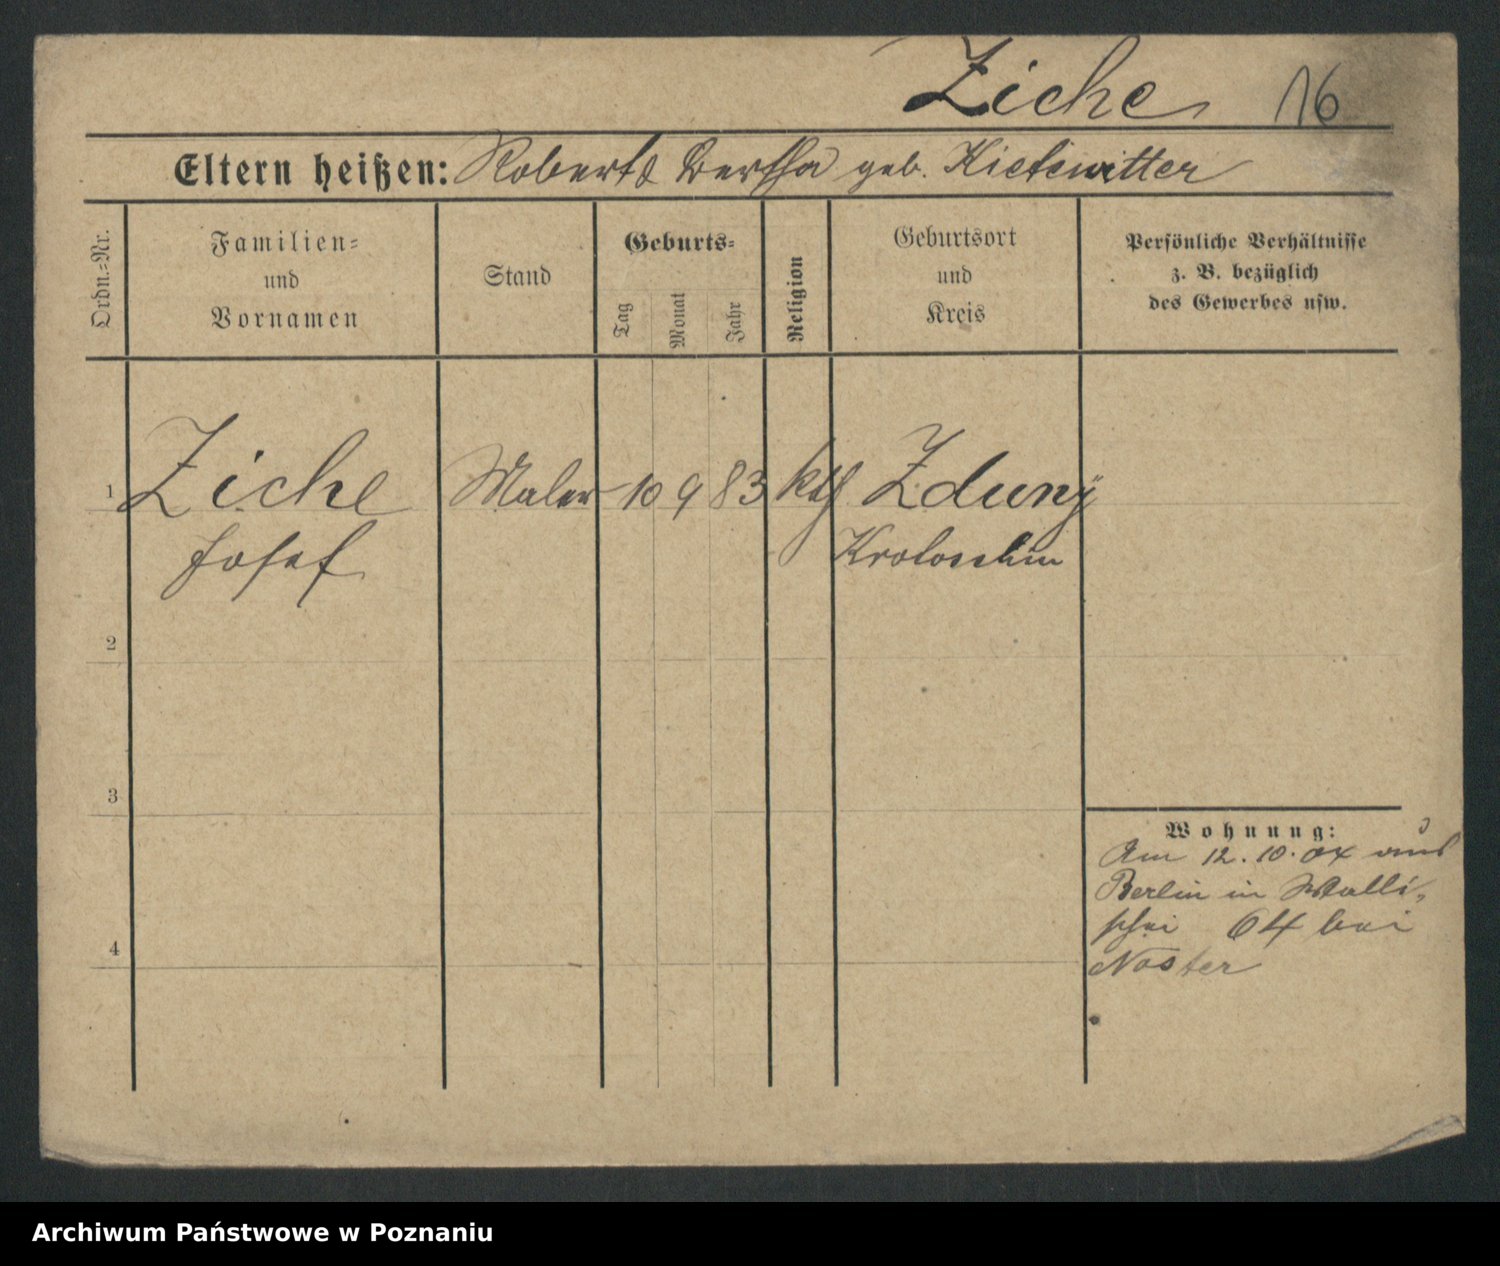 Ziche 16
Eltern heißen: Robert & Bertha geb. Kietewitter
Ordn.-Nr.
Familien-
und
Vornamen
Stand
Geburts-
Tag
Monat
Jahr
Religion
Geburtsort
und
Kreis
Persönliche Verhältnisse
z. B. bezüglich
des Gewerbes usw.
1 Ziche Maler 10 9 83 kth Zduny
Josef Krotoschin
2
3
Wohnung:
Am 12. 10. 04 aus
Berlin in Walli-
schei 64 bei
4
Noster
Archiwum Państwowe w Poznaniu